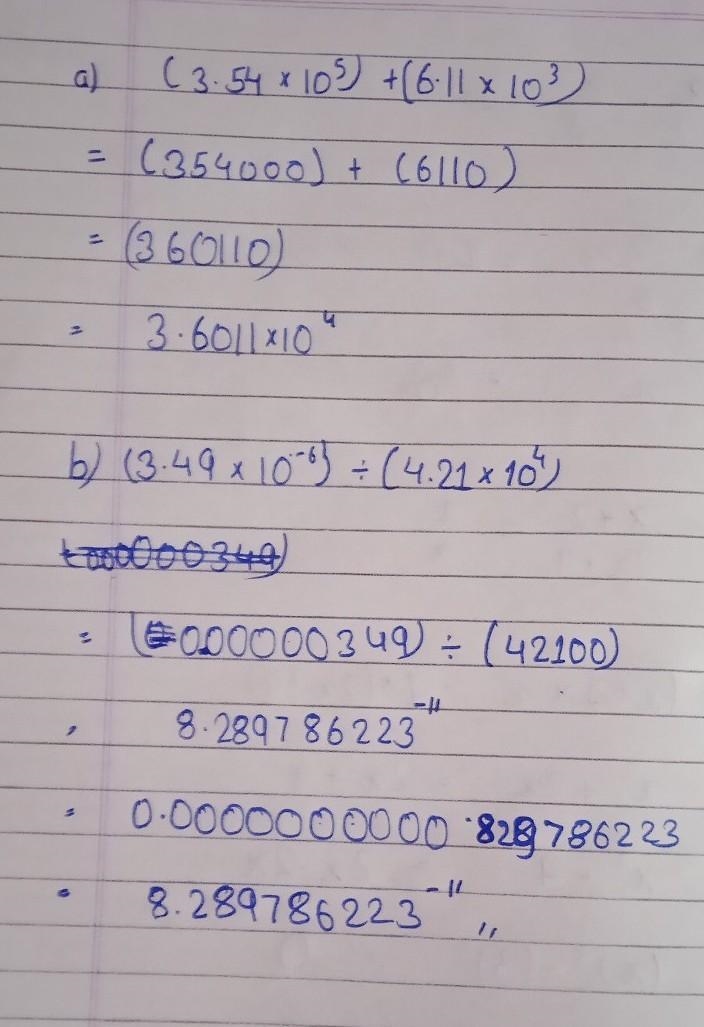 a) (3.54 × 10⁵) + (6.11 × 10³)
= (354000) + (6110)
= (360110)
= 3.6011×10⁴
b) (3.49 × 10⁻⁶) ÷ (4.21 × 10⁴)
= (0.00000349) ÷ (42100)
, 8.289786223⁻¹¹
= 0.0000000000 8289786223
= 8.289786223⁻¹¹ ,,